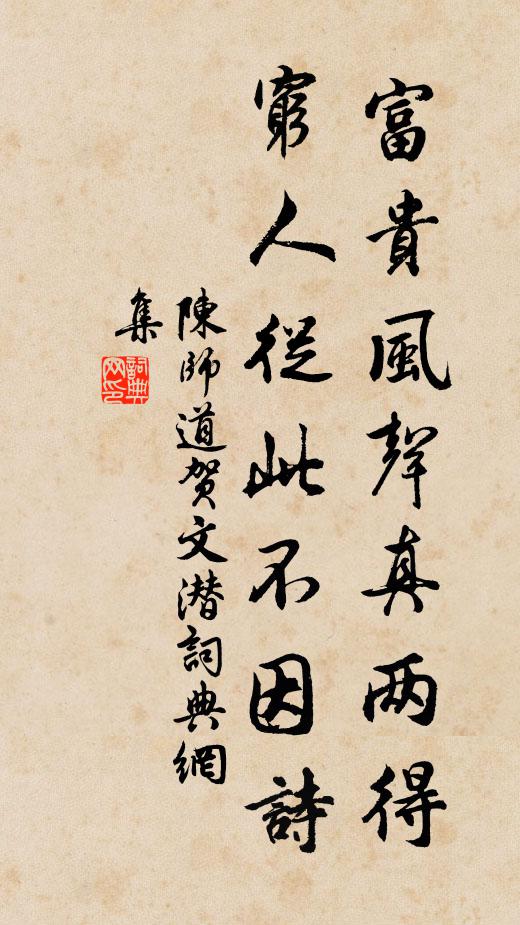 富貴風聲真两得
窮人從此不因詩
陳師道賀文潜詞典網
集
詞典
网印